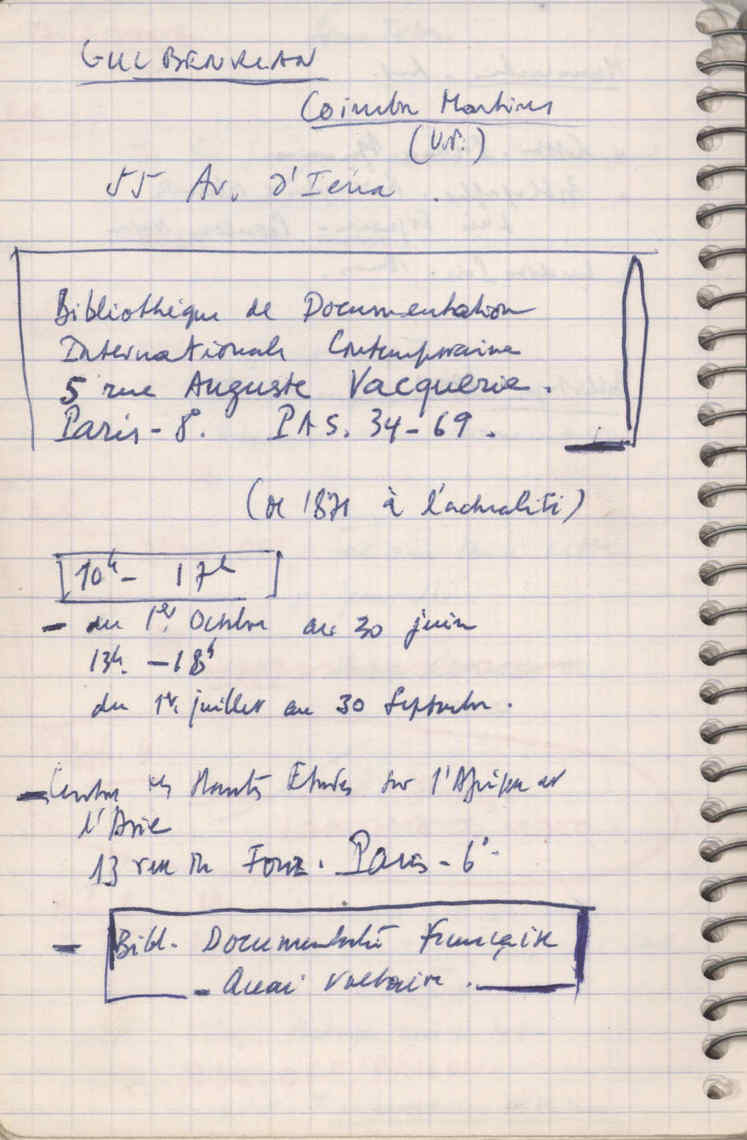 GULBENKIAN
Coimbra Martins
55 Av. d'Iéna.
Bibliothèque de Documentation
Internationale Contemporaine
5 rue Auguste Vacquerie.
Paris - 8e. PAS. 34-69.
(de 1871 à l'actualité)
10h - 17h
- du 1er Octobre au 30 juin
13h. - 18h
du 1er juillet au 30 Septembre.
- Centre des Hautes Etudes sur l'Afrique et
l'Asie
13 rue du Four. Paris - 6e.
- Bibl. Documentation française
- Quai Voltaire.